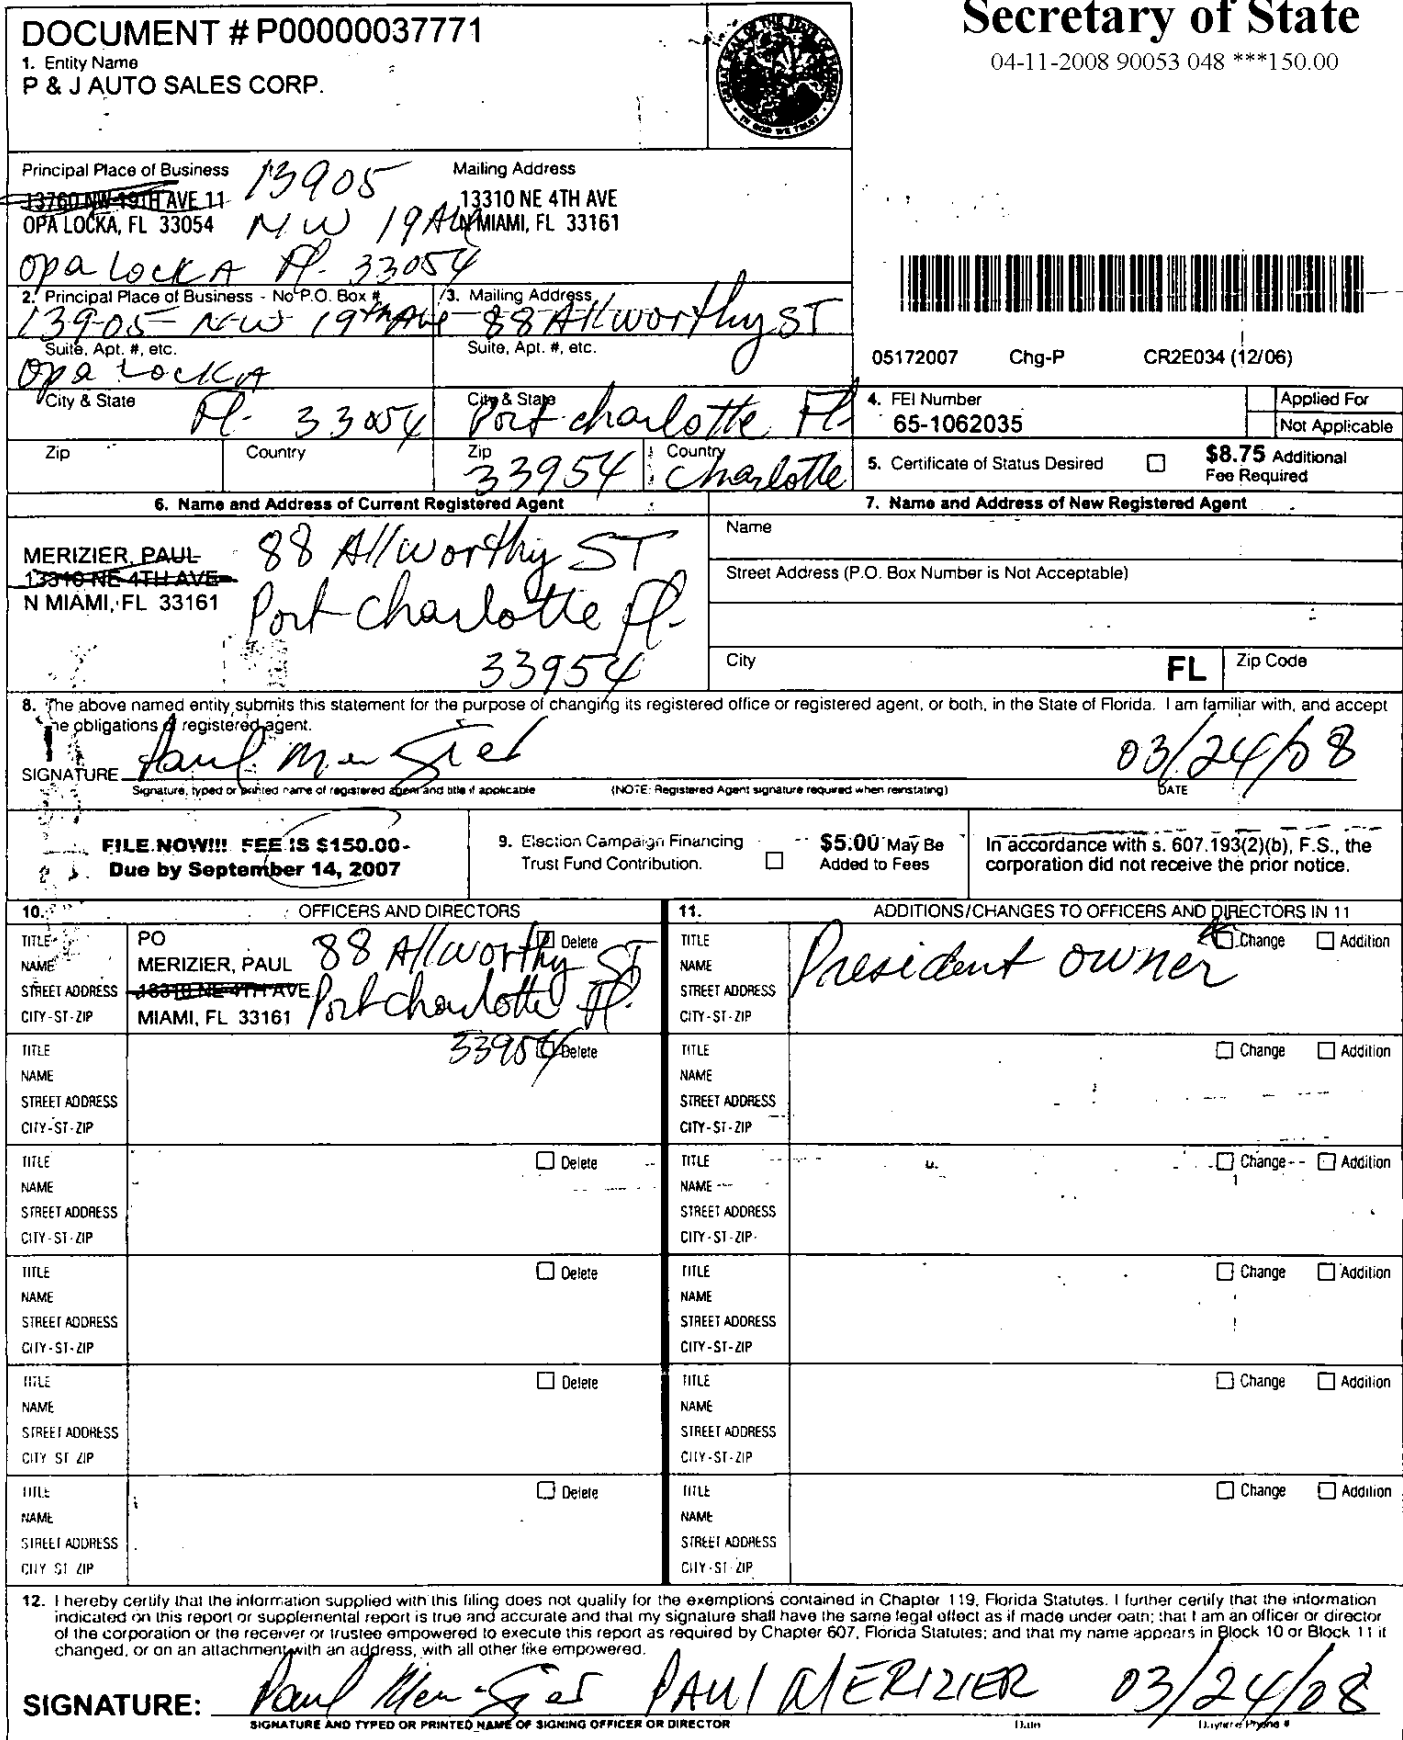 Secretary of State
04-11-2008 90053 048 ***150.00
DOCUMENT # P00000037771
1. Entity Name
P & J AUTO SALES CORP.
Principal Place of Business
13760 NW 19TH AVE 11
OPA LOCKA, FL 33054
13905
NW 19 Ave
Opa Locka Fl. 33054
Mailing Address
13310 NE 4TH AVE
N MIAMI, FL 33161
2. Principal Place of Business - No P.O. Box #
13905 NW 19th Ave
3. Mailing Address
88 Allworthy ST
Suite, Apt. #, etc.
Opa Locka
Suite, Apt. #, etc.
City & State
Fl. 33054
City & State
Port charlotte Fl.
Zip
Country
Zip
33954
Country
Charlotte
05172007 Chg-P CR2E034 (12/06)
4. FEI Number
65-1062035
Applied For
Not Applicable
5. Certificate of Status Desired
$8.75 Additional
Fee Required
6. Name and Address of Current Registered Agent
MERIZIER, PAUL
13310 NE 4TH AVE
N MIAMI, FL 33161
88 Allworthy ST
Port charlotte Fl.
33954
7. Name and Address of New Registered Agent
Name
Street Address (P.O. Box Number is Not Acceptable)
City
FL
Zip Code
8. The above named entity submits this statement for the purpose of changing its registered office or registered agent, or both, in the State of Florida. I am familiar with, and accept
the obligations of registered agent.
SIGNATURE Paul Merizier 03/24/08
Signature, typed or printed name of registered agent and title if applicable (NOTE: Registered Agent signature required when reinstating) DATE
FILE NOW!!! FEE IS $150.00
Due by September 14, 2007
9. Election Campaign Financing
Trust Fund Contribution.
$5.00 May Be
Added to Fees
In accordance with s. 607.193(2)(b), F.S., the
corporation did not receive the prior notice.
10. OFFICERS AND DIRECTORS
TITLE PO Delete
NAME MERIZIER, PAUL 88 Allworthy ST
STREET ADDRESS 13310 NE 4TH AVE Port charlotte Fl.
CITY-ST-ZIP MIAMI, FL 33161
33954
TITLE Delete
NAME
STREET ADDRESS
CITY-ST-ZIP
TITLE Delete
NAME
STREET ADDRESS
CITY-ST-ZIP
TITLE Delete
NAME
STREET ADDRESS
CITY-ST-ZIP
TITLE Delete
NAME
STREET ADDRESS
CITY ST ZIP
TITLE Delete
NAME
STREET ADDRESS
CITY ST ZIP
11. ADDITIONS/CHANGES TO OFFICERS AND DIRECTORS IN 11
TITLE Change Addition
NAME President owner
STREET ADDRESS
CITY-ST-ZIP
TITLE Change Addition
NAME
STREET ADDRESS
CITY-ST-ZIP
TITLE Change Addition
NAME
STREET ADDRESS
CITY-ST-ZIP
TITLE Change Addition
NAME
STREET ADDRESS
CITY-ST-ZIP
TITLE Change Addition
NAME
STREET ADDRESS
CITY-ST-ZIP
TITLE Change Addition
NAME
STREET ADDRESS
CITY-ST-ZIP
12. I hereby certify that the information supplied with this filing does not qualify for the exemptions contained in Chapter 119, Florida Statutes. I further certify that the information
indicated on this report or supplemental report is true and accurate and that my signature shall have the same legal effect as if made under oath; that I am an officer or director
of the corporation or the receiver or trustee empowered to execute this report as required by Chapter 607, Florida Statutes; and that my name appears in Block 10 or Block 11 if
changed, or on an attachment with an address, with all other like empowered.
SIGNATURE: Paul Merizier PAUL MERIZIER 03/24/08
SIGNATURE AND TYPED OR PRINTED NAME OF SIGNING OFFICER OR DIRECTOR Date Daytime Phone #